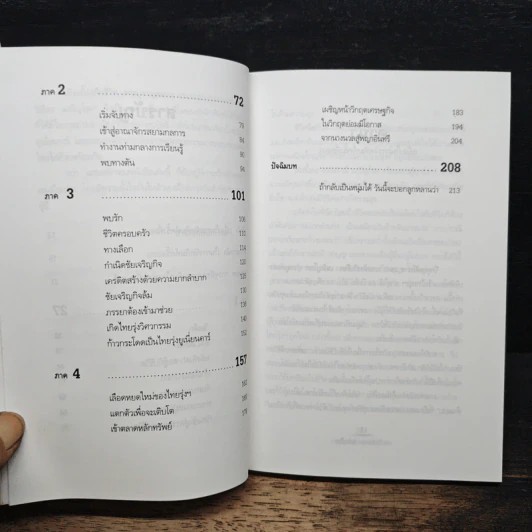 ภาค 2 72
เริ่มจับทาง
เข้าสู่อาณาจักรสยามกลการ
ทำงานท่ามกลางการเรียนรู้
พบทางตัน
ภาค 3 101
พบรัก 106
ชีวิตครอบครัว 110
ทางเลือก 114
กำเนิดชัยเจริญกิจ
เครดิตสร้างด้วยความยากลำบาก
ชัยเจริญกิจล้ม
ภรรยาต้องเข้ามาช่วย
เกิดไทยรุ่งวิศวกรรม
ก้าวกระโดดเป็นไทยรุ่งยูเนี่ยนคาร์
ภาค 4 157
เลือดหยดใหม่ของไทยรุ่งฯ
แตกตัวเพื่อจะเติบโต
เข้าตลาดหลักทรัพย์
เผชิญหน้าวิกฤตเศรษฐกิจ 183
ในวิกฤตย่อมมีโอกาส 194
จากนางนวลสู่พญาอินทรี 204
ปัจฉิมบท 208
ถ้ากลับเป็นหนุ่มได้ วันนี้จะบอกลูกหลานว่า 213